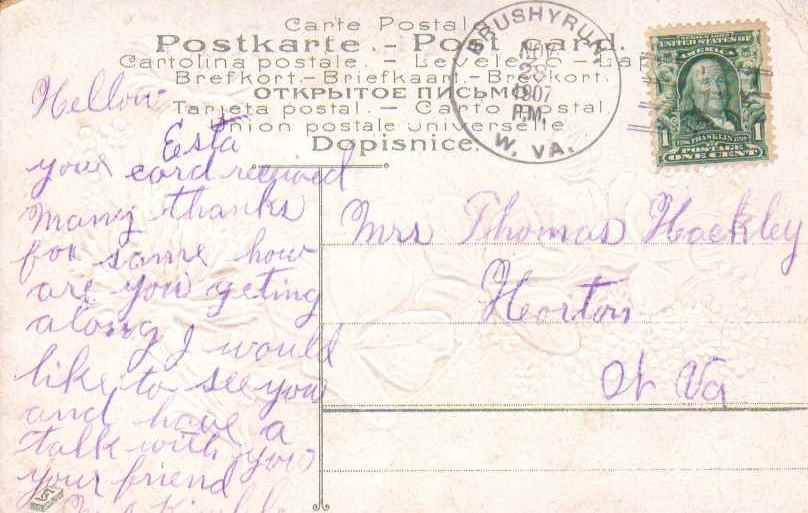 Carte Postal
Postkarte. – Post card.
Cartolina postale. – Levelező – Lap
Brefkort. – Briefkaart. – Brevkort.
ОТКРЫТОЕ ПИСЬМО
Tarjeta postal. – Carto postal
Union postale universelle
Dopisnice.
BRUSHYRUN
1907
P.M.
W. VA.
UNITED STATES OF
AMERICA
1 FRANKLIN 1
POSTAGE
ONE CENT
Hellow
Esta
your card received
many thanks
for same how
are you geting
along I would
like to see you
and have a
talk with you
your friend
Mrs Thomas Hackley
Horton
W Va